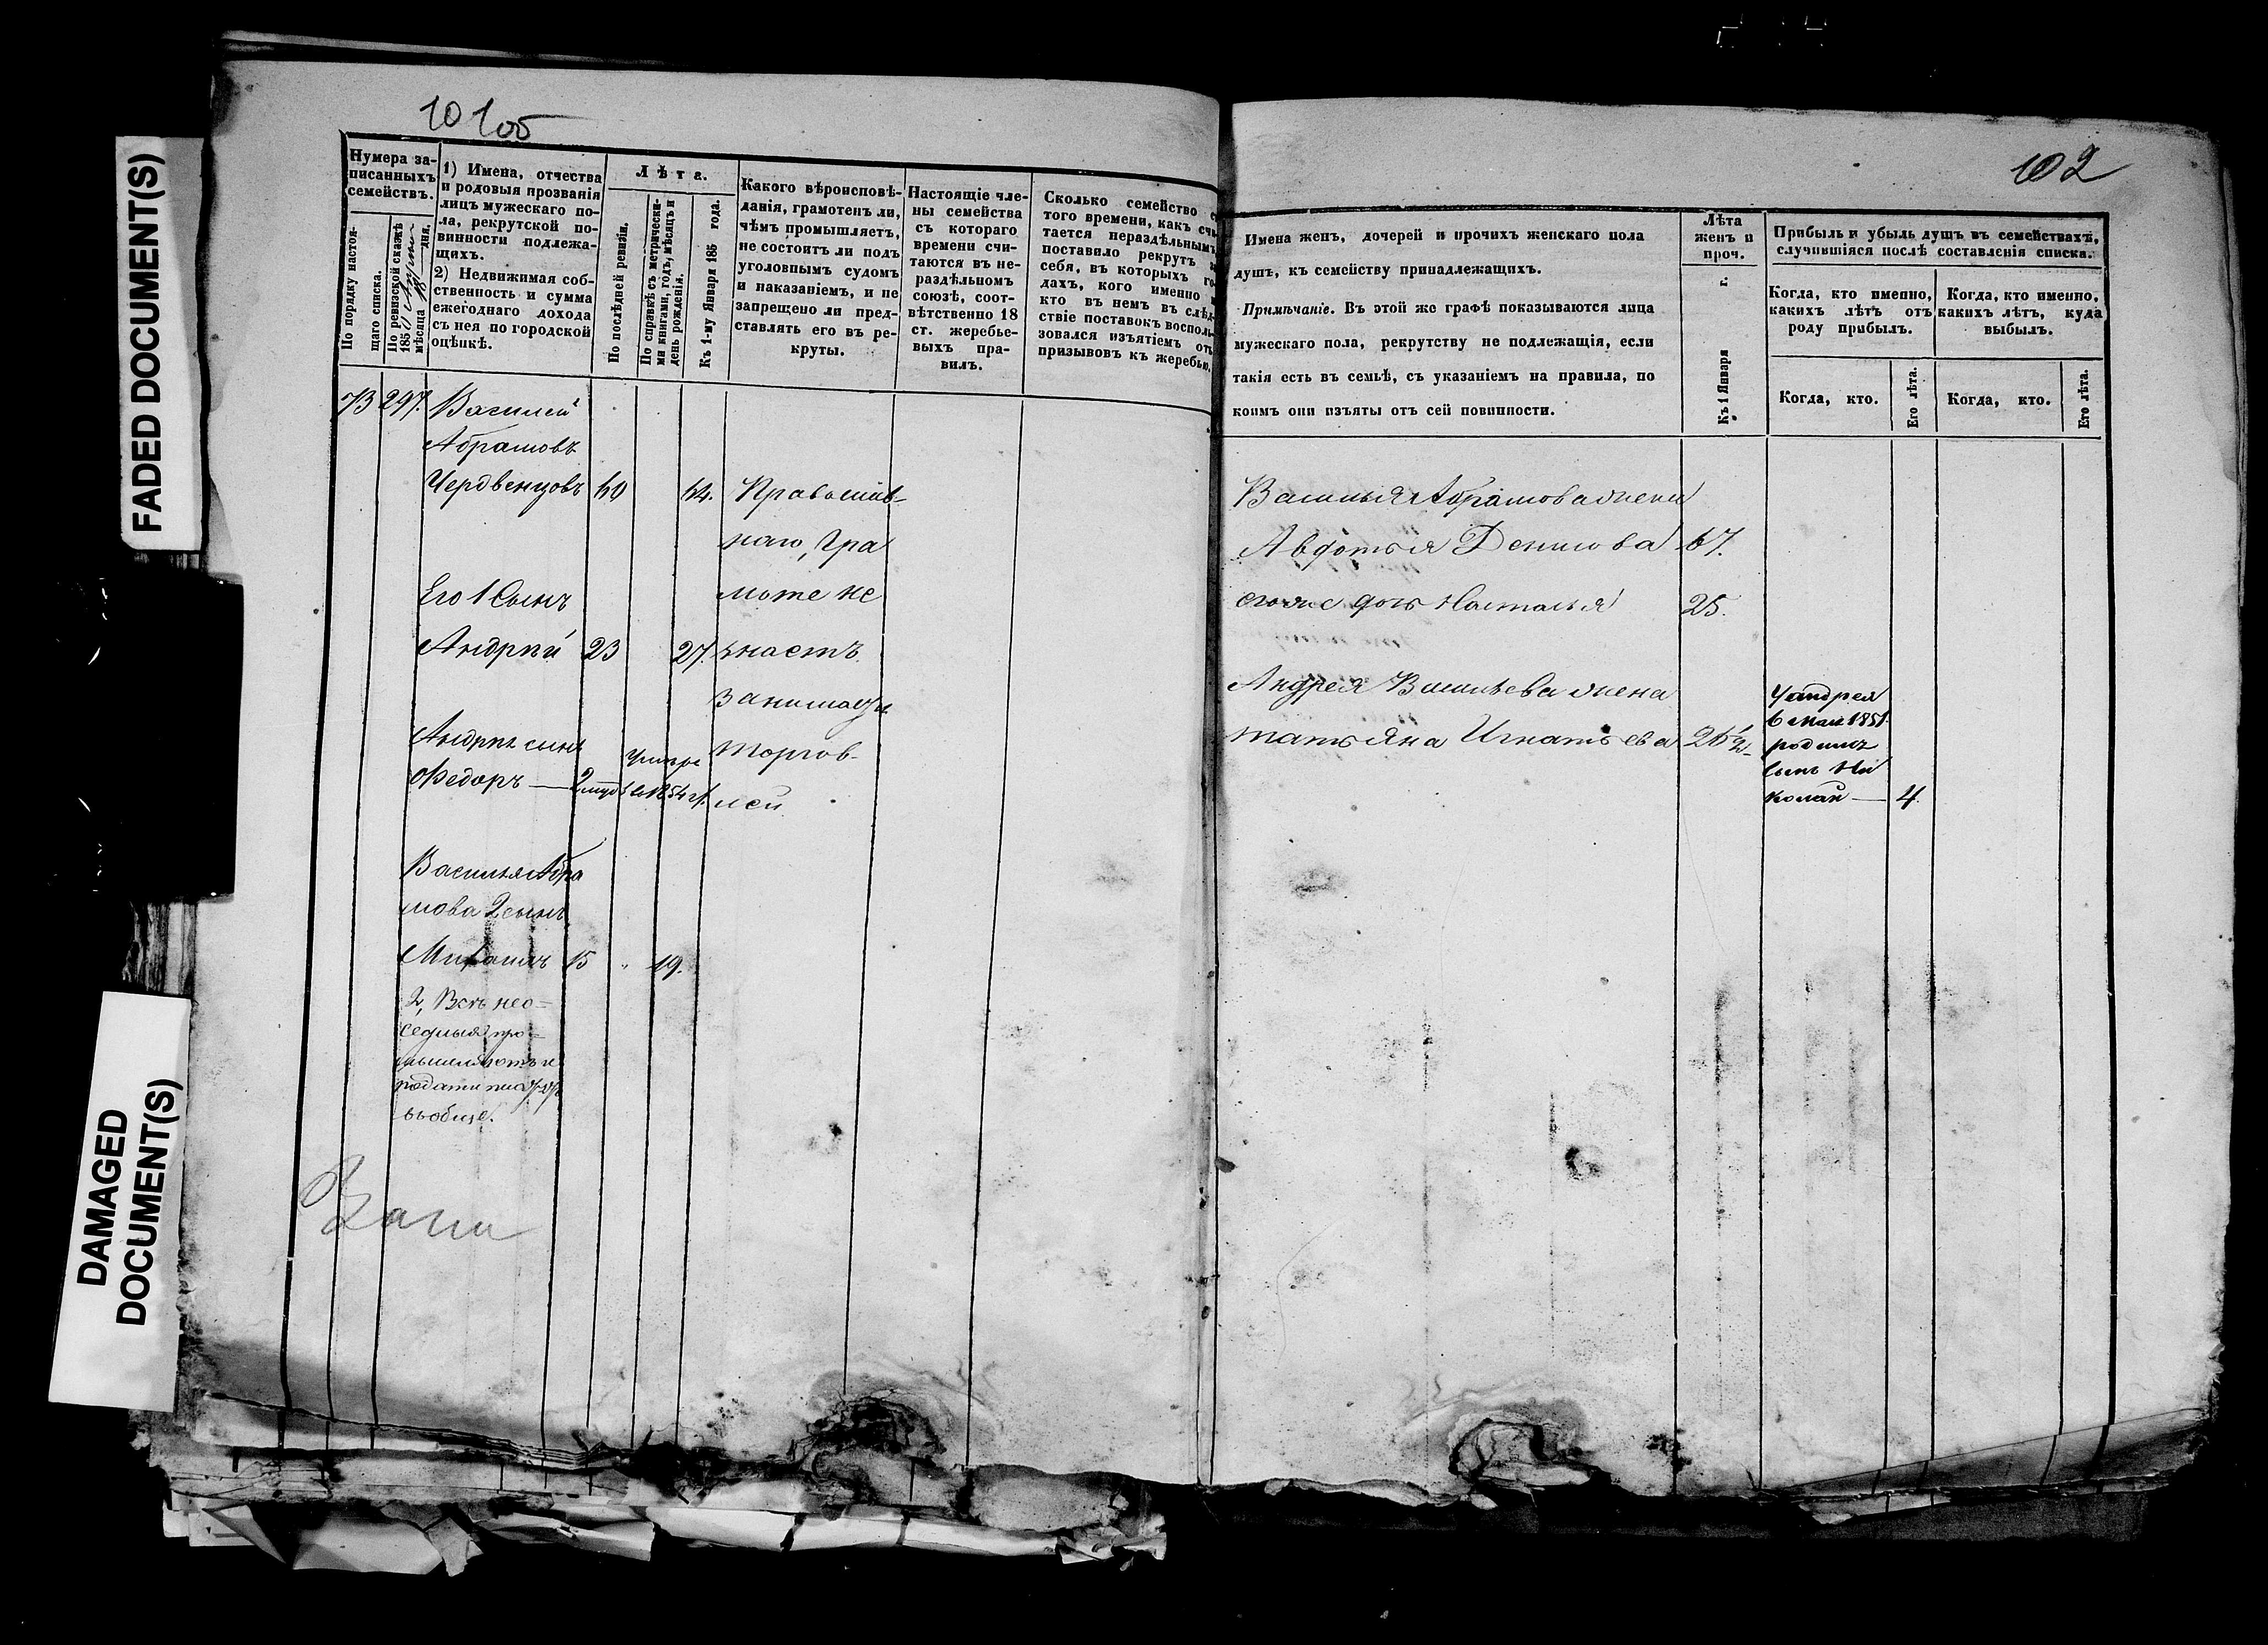 FADED DOCUMENT(S)
DAMAGED
DOCUMENT(S)
101об
Нумера за-
писанныхъ
семействъ.
По порядку настоя-
щаго списка.
По ревизской сказкѣ
185
мѣсяца дня.
1) Имена, отчества
и родовыя прозванія
лицъ мужескаго по-
ла, рекрутской по-
винности подлежа-
щихъ.
2) Недвижимая соб-
ственность и сумма
ежегоднаго дохода
съ нея по городской
оцѣнкѣ.
Лѣта.
По послѣдней ревизіи.
По справкѣ съ метрически-
ми книгами, годъ, мѣсяцъ и
день рожденія.
Къ 1-му Января 185 года.
Какого вѣроисповѣ-
данія, грамотенъ ли,
чѣмъ промышляетъ,
не состоитъ ли подъ
уголовнымъ судомъ
и наказаніемъ, и не
запрещено ли пред-
ставлять его въ ре-
круты.
Настоящіе чле-
ны семейства
съ котораго
времени счи-
таются въ не-
раздѣльномъ
союзѣ, соот-
вѣтственно 18
ст. жеребье-
выхъ пра-
вилъ.
Сколько семейство с
того времени, какъ счи
тается нераздѣльнымъ
поставило рекрутъ за
себя, въ которыхъ го-
дахъ, кого именно и
кто въ немъ въ слѣд-
ствіе поставокъ восполь-
зовался изъятіемъ отъ
призывовъ къ жеребью.
73 297. Василей
Абрамовъ
Чердвенцовъ 60 64. Православ-
наго, гра
Его 1 Сынъ моте не
Андрѣй 23 27. знаетъ
занимается
Андрѣя сынъ торгов-
Федоръ — лей.
Василья Абра
мова 2 сынъ
Михаилъ 15 " 19.
2, Всѣ нео-
вообще.
102
Имена женъ, дочерей и прочихъ женскаго пола
душъ, къ семейству принадлежащихъ.
Примѣчаніе. Въ этой же графѣ показываются лица
мужескаго пола, рекрутству не подлежащія, если
такія есть въ семьѣ, съ указаніемъ на правила, по
коимъ они изъяты отъ сей повинности.
Лѣта
женъ и
проч.
Къ 1 Января г.
Прибыль и убыль душъ въ семействахъ,
случившіяся послѣ составленія списка.
Когда, кто именно,
какихъ лѣтъ отъ
роду прибылъ.
Когда, кто именно,
какихъ лѣтъ, куда
выбылъ.
Когда, кто.
Его лѣта.
Когда, кто.
Его лѣта.
Василья Абрамова жена
Авдотья Денисова 67.
его же дочь Наталья 25.
Андрея Васильева жена
Татьяна Игнатьева 26½
У андрея
6 мая 1851
родился
сынъ Ни
колай — 4.